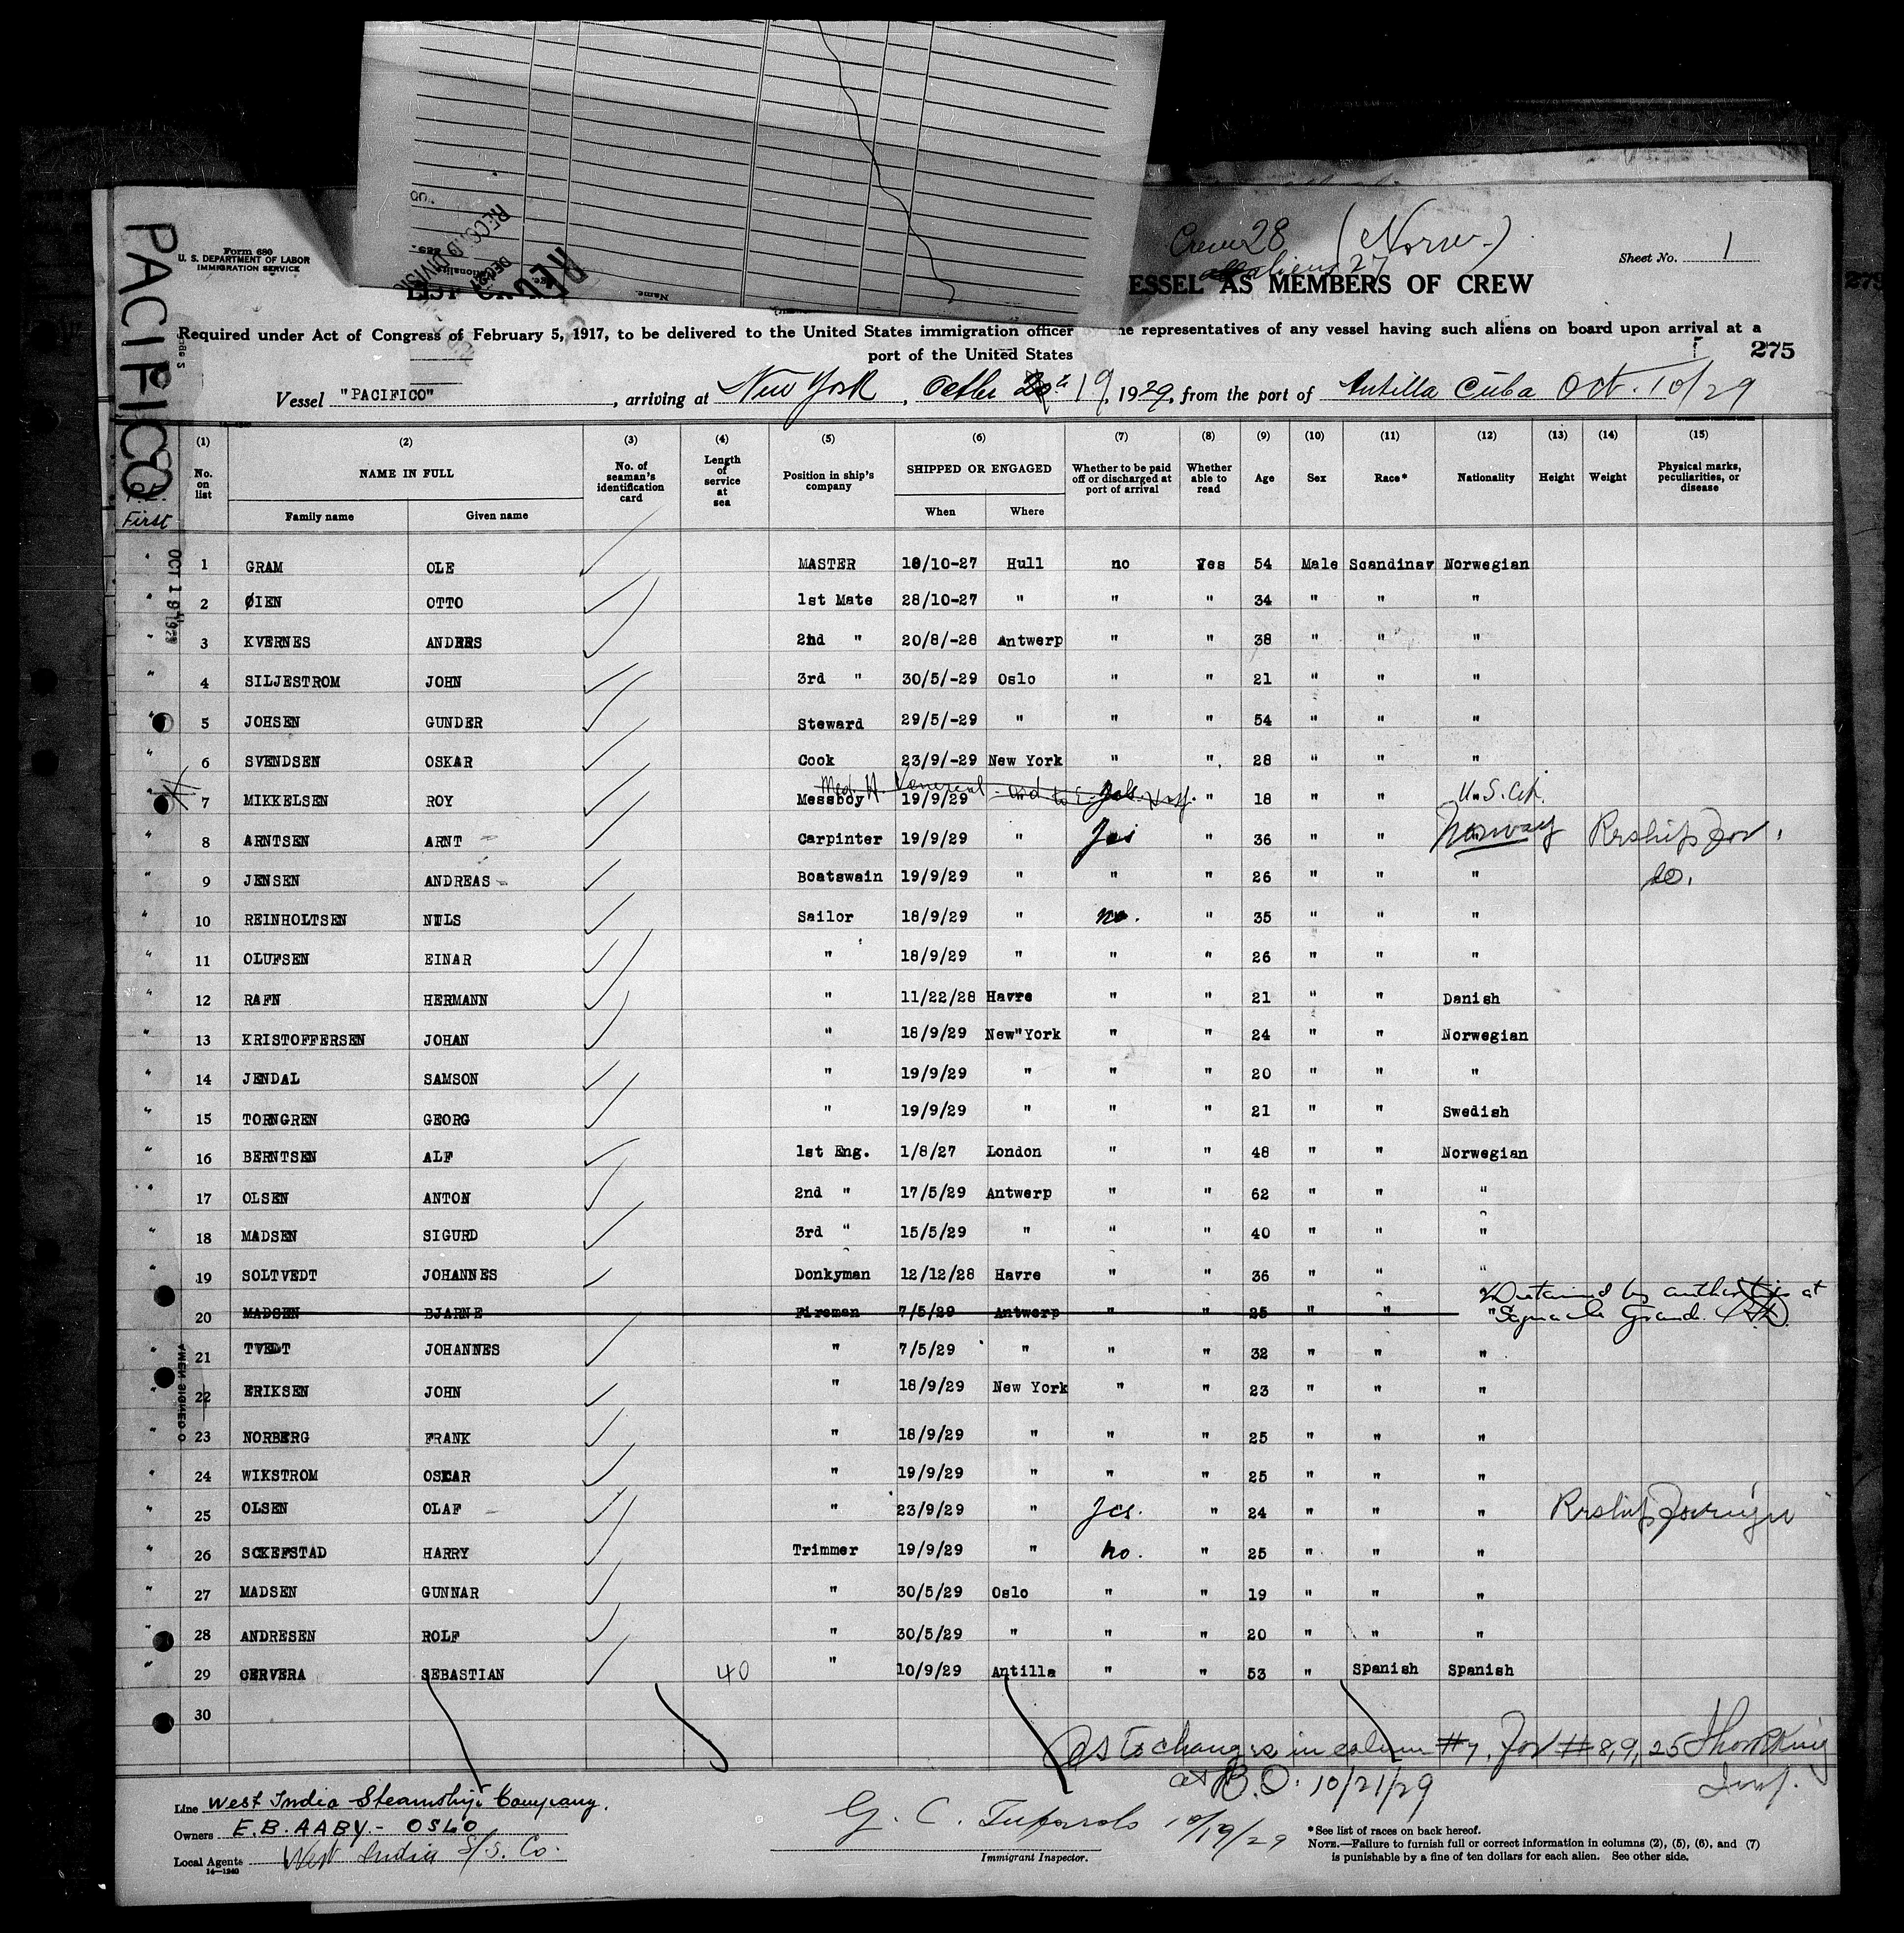 PACIFICO
Form 680
U. S. DEPARTMENT OF LABOR
IMMIGRATION SERVICE
Crew 28 (Norw.)
aliens 27
Sheet No. 1
ESSEL AS MEMBERS OF CREW
Required under Act of Congress of February 5, 1917, to be delivered to the United States immigration officer
he representatives of any vessel having such aliens on board upon arrival at a
port of the United States
275
Vessel "PACIFICO", arriving at New York, October 19, 1929, from the port of Antilla Cuba Oct. 10/29
(1) (2) (3) (4) (5) (6) (7) (8) (9) (10) (11) (12) (13) (14) (15)
No. on list NAME IN FULL No. of seaman's identification card Length of service at sea Position in ship's company SHIPPED OR ENGAGED Whether to be paid off or discharged at port of arrival Whether able to read Age Sex Race* Nationality Height Weight Physical marks, peculiarities, or disease
Family name Given name When Where
First
OCT 19 1929
1 GRAM OLE MASTER 18/10-27 Hull no Yes 54 Male Scandinav Norwegian
2 ØIEN OTTO 1st Mate 28/10-27 " " " 34 " " "
3 KVERNES ANDERS 2nd " 20/8/-28 Antwerp " " 38 " " "
4 SILJESTROM JOHN 3rd " 30/5/-29 Oslo " " 21 " " "
5 JOHSEN GUNDER Steward 29/5/-29 " " " 54 " " "
6 SVENDSEN OSKAR Cook 23/9/-29 New York " " 28 " " "
7 MIKKELSEN ROY Messboy 19/9/29 " 18 " " U.S. Cit.
8 ARNTSEN ARNT Carpinter 19/9/29 " Yes " 36 " " Norway Reship for.
9 JENSEN ANDREAS Boatswain 19/9/29 " " " 26 " " " do.
10 REINHOLTSEN NILS Sailor 18/9/29 " no. " 35 " " "
11 OLUFSEN EINAR " 18/9/29 " " " 26 " " "
12 RAFN HERMANN " 11/22/28 Havre " " 21 " " Danish
13 KRISTOFFERSEN JOHAN " 18/9/29 New"York " " 24 " " Norwegian
14 JENDAL SAMSON " 19/9/29 " " " 20 " " "
15 TORNGREN GEORG " 19/9/29 " " " 21 " " Swedish
16 BERNTSEN ALF 1st Eng. 1/8/27 London " " 48 " " Norwegian
17 OLSEN ANTON 2nd " 17/5/29 Antwerp " " 62 " " "
18 MADSEN SIGURD 3rd " 15/5/29 " " " 40 " " "
19 SOLTVEDT JOHANNES Donkyman 12/12/28 Havre " " 36 " " "
20 MADSEN BJARNE Fireman 7/5/29 Antwerp " " 25 " " Detained by authorities at
"Sagua la Grande.
21 TVEDT JOHANNES " 7/5/29 " " " 32 " " "
22 ERIKSEN JOHN " 18/9/29 New York " " 23 " " "
23 NORBERG FRANK " 18/9/29 " " " 25 " " "
24 WIKSTROM OSCAR " 19/9/29 " " " 25 " " "
25 OLSEN OLAF " 23/9/29 " Yes. " 24 " " " Reship foreign
26 SCKEFSTAD HARRY Trimmer 19/9/29 " no. " 25 " " "
27 MADSEN GUNNAR " 30/5/29 Oslo " " 19 " " "
28 ANDRESEN ROLF " 30/5/29 " " " 20 " " "
29 CERVERA SEBASTIAN 40 " 10/9/29 Antilla " " 53 " Spanish Spanish
30
As to changes in column #7, for #8, 9, 25
at B.O. 10/21/29 Insp.
Line West India Steamship Company.
Owners E.B. AABY.- OSLO
Local Agents West India S/S. Co.
14-1240
10/19/29
Immigrant Inspector.
*See list of races on back hereof.
NOTE.—Failure to furnish full or correct information in columns (2), (5), (6), and (7)
is punishable by a fine of ten dollars for each alien. See other side.